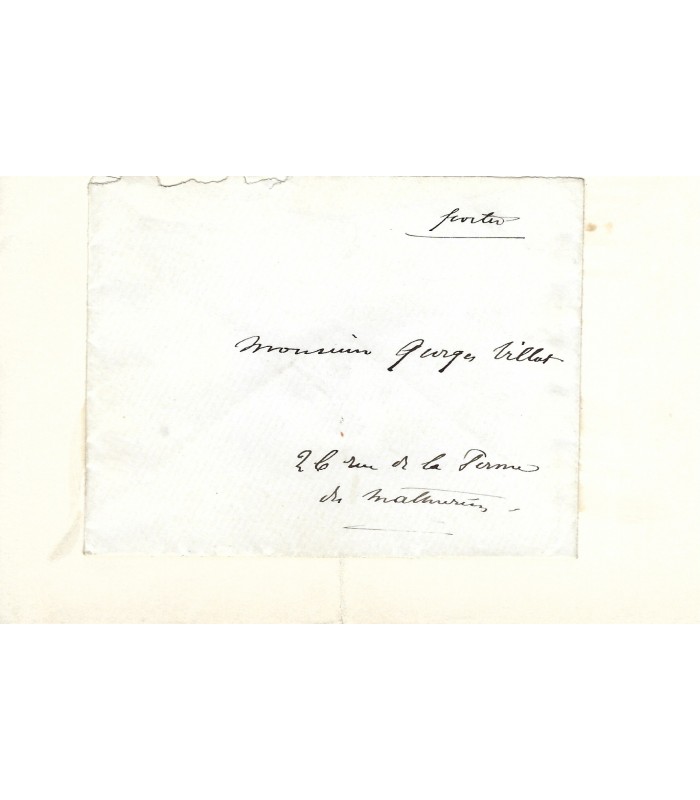 porter
Monsieur Georges Villot
26 rue de la Ferme
des Mathurins